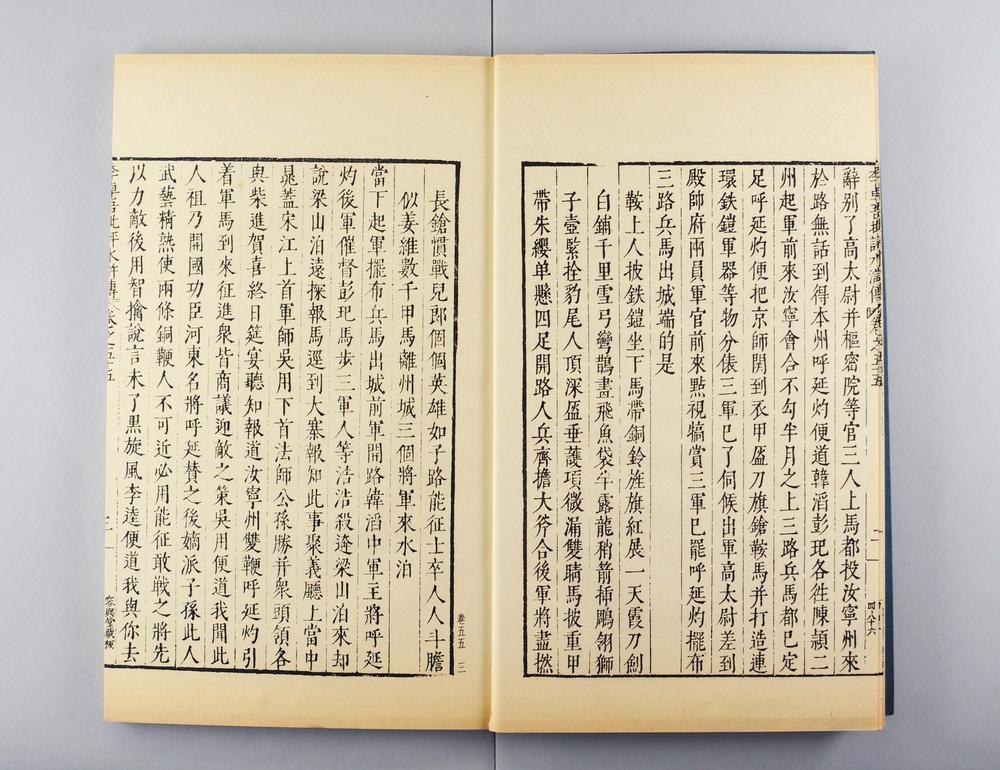 辭别了高太尉并樞密院等官三人上馬都投汝寧州來
於路無話到得本州呼延灼便道韓滔彭玘各徃陳頴二
州起軍前來汝寧會合不勾半月之上三路兵馬都已定
足呼延灼便把京師関到衣甲盔刀旗鎗鞍馬并打造連
環鉄鎧軍器等物分俵三軍已了伺候出軍高太尉差到
殿帥府兩員軍官前來點視犒賞三軍已罷呼延灼擺布
三路兵馬出城端的是
鞍上人披鉄鎧坐下馬帶銅鈴旌旗紅展一天霞刀劍
白鋪千里雪弓彎鵲畫飛魚袋半露龍稍箭插鵰翎獅
子壼緊拴豹尾人頂深盔垂護項微漏雙睛馬披重甲
帶朱纓单懸四足開路人兵齊擔大斧合後軍將盡撚
卷五五 三
長鎗慣戰兒郎個個英雄如子路能征士卒人人斗膽
似姜維數千甲馬離州城三個將軍來水泊
當下起軍擺布兵馬出城前軍開路韓滔中軍主將呼延
灼後軍催督彭玘馬步三軍人等浩浩殺逩梁山泊來却
說梁山泊遠探報馬逕到大寨報知此事聚義廳上當中
晁蓋宋江上首軍師吳用下首法師公孫勝并衆頭領各
與柴進賀喜終日筵宴聽知報道汝寧州雙鞭呼延灼引
着軍馬到來征進衆皆商議迎敵之策吳用便道我聞此
人祖乃開國功臣河東名將呼延賛之後嫡派子孫此人
武藝精熟使兩條銅鞭人不可近必用能征敢戰之將先
以力敵後用智擒說言未了黒旋風李逵便道我與你去
容與堂藏板